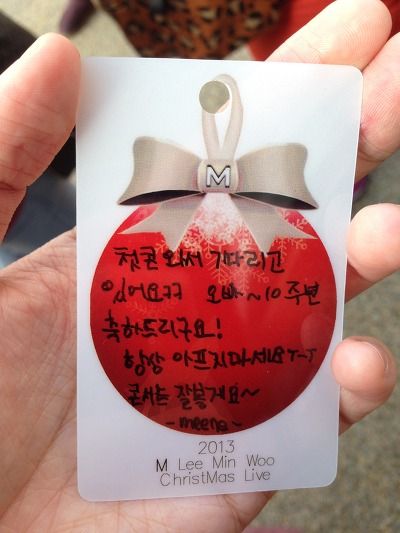 M
첫콘 와써 기다리고
있어요ㅋㅋ 오빠~10주년
축하드리구요!
항상 아프지마세요T-T
콘서트 잘볼게요~
-meena-
2013
M Lee Min Woo
ChristMas Live